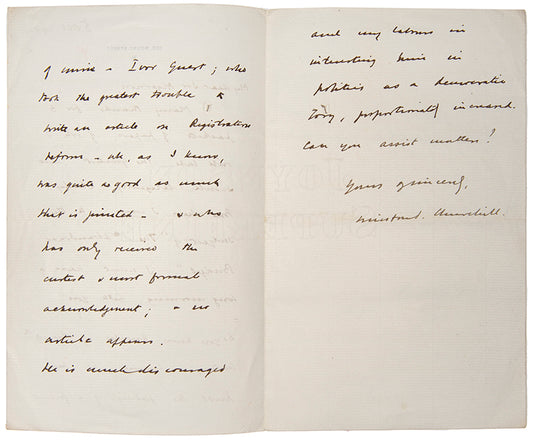 of mine – Ivor Guest; who
took the greatest trouble to
write an article on Registration
reform – wh, as I know,
was quite as good as much
that is printed – & who
has only received the
curtest & most formal
acknowledgment; & no
article appears.
He is much discouraged
and my labours in
interesting him in
politics as a democratic
Tory, proportionately increased.
Can you assist matters?
Yours sincerely,
Winston S. Churchill.